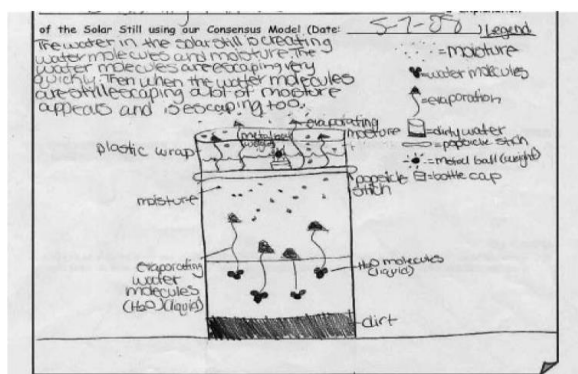 Explanation
of the Solar Still using our Consensus Model (Date: 5-7-08) Legend
The water in the solar still is creating
water molecules and moisture. The
water molecules are escaping very
quickly. Then when the water molecules
are still escaping a lot of moisture
appears and is escaping too.
= moisture
= water molecules
= evaporation
= dirty water
= popsicle stick
= metal ball (weight)
= bottle cap
evaporating
moisture
metal ball
plastic wrap
popsicle
stick
moisture
evaporating
water
molecules
(H2O)(liquid)
H2O molecules
(liquid)
dirt